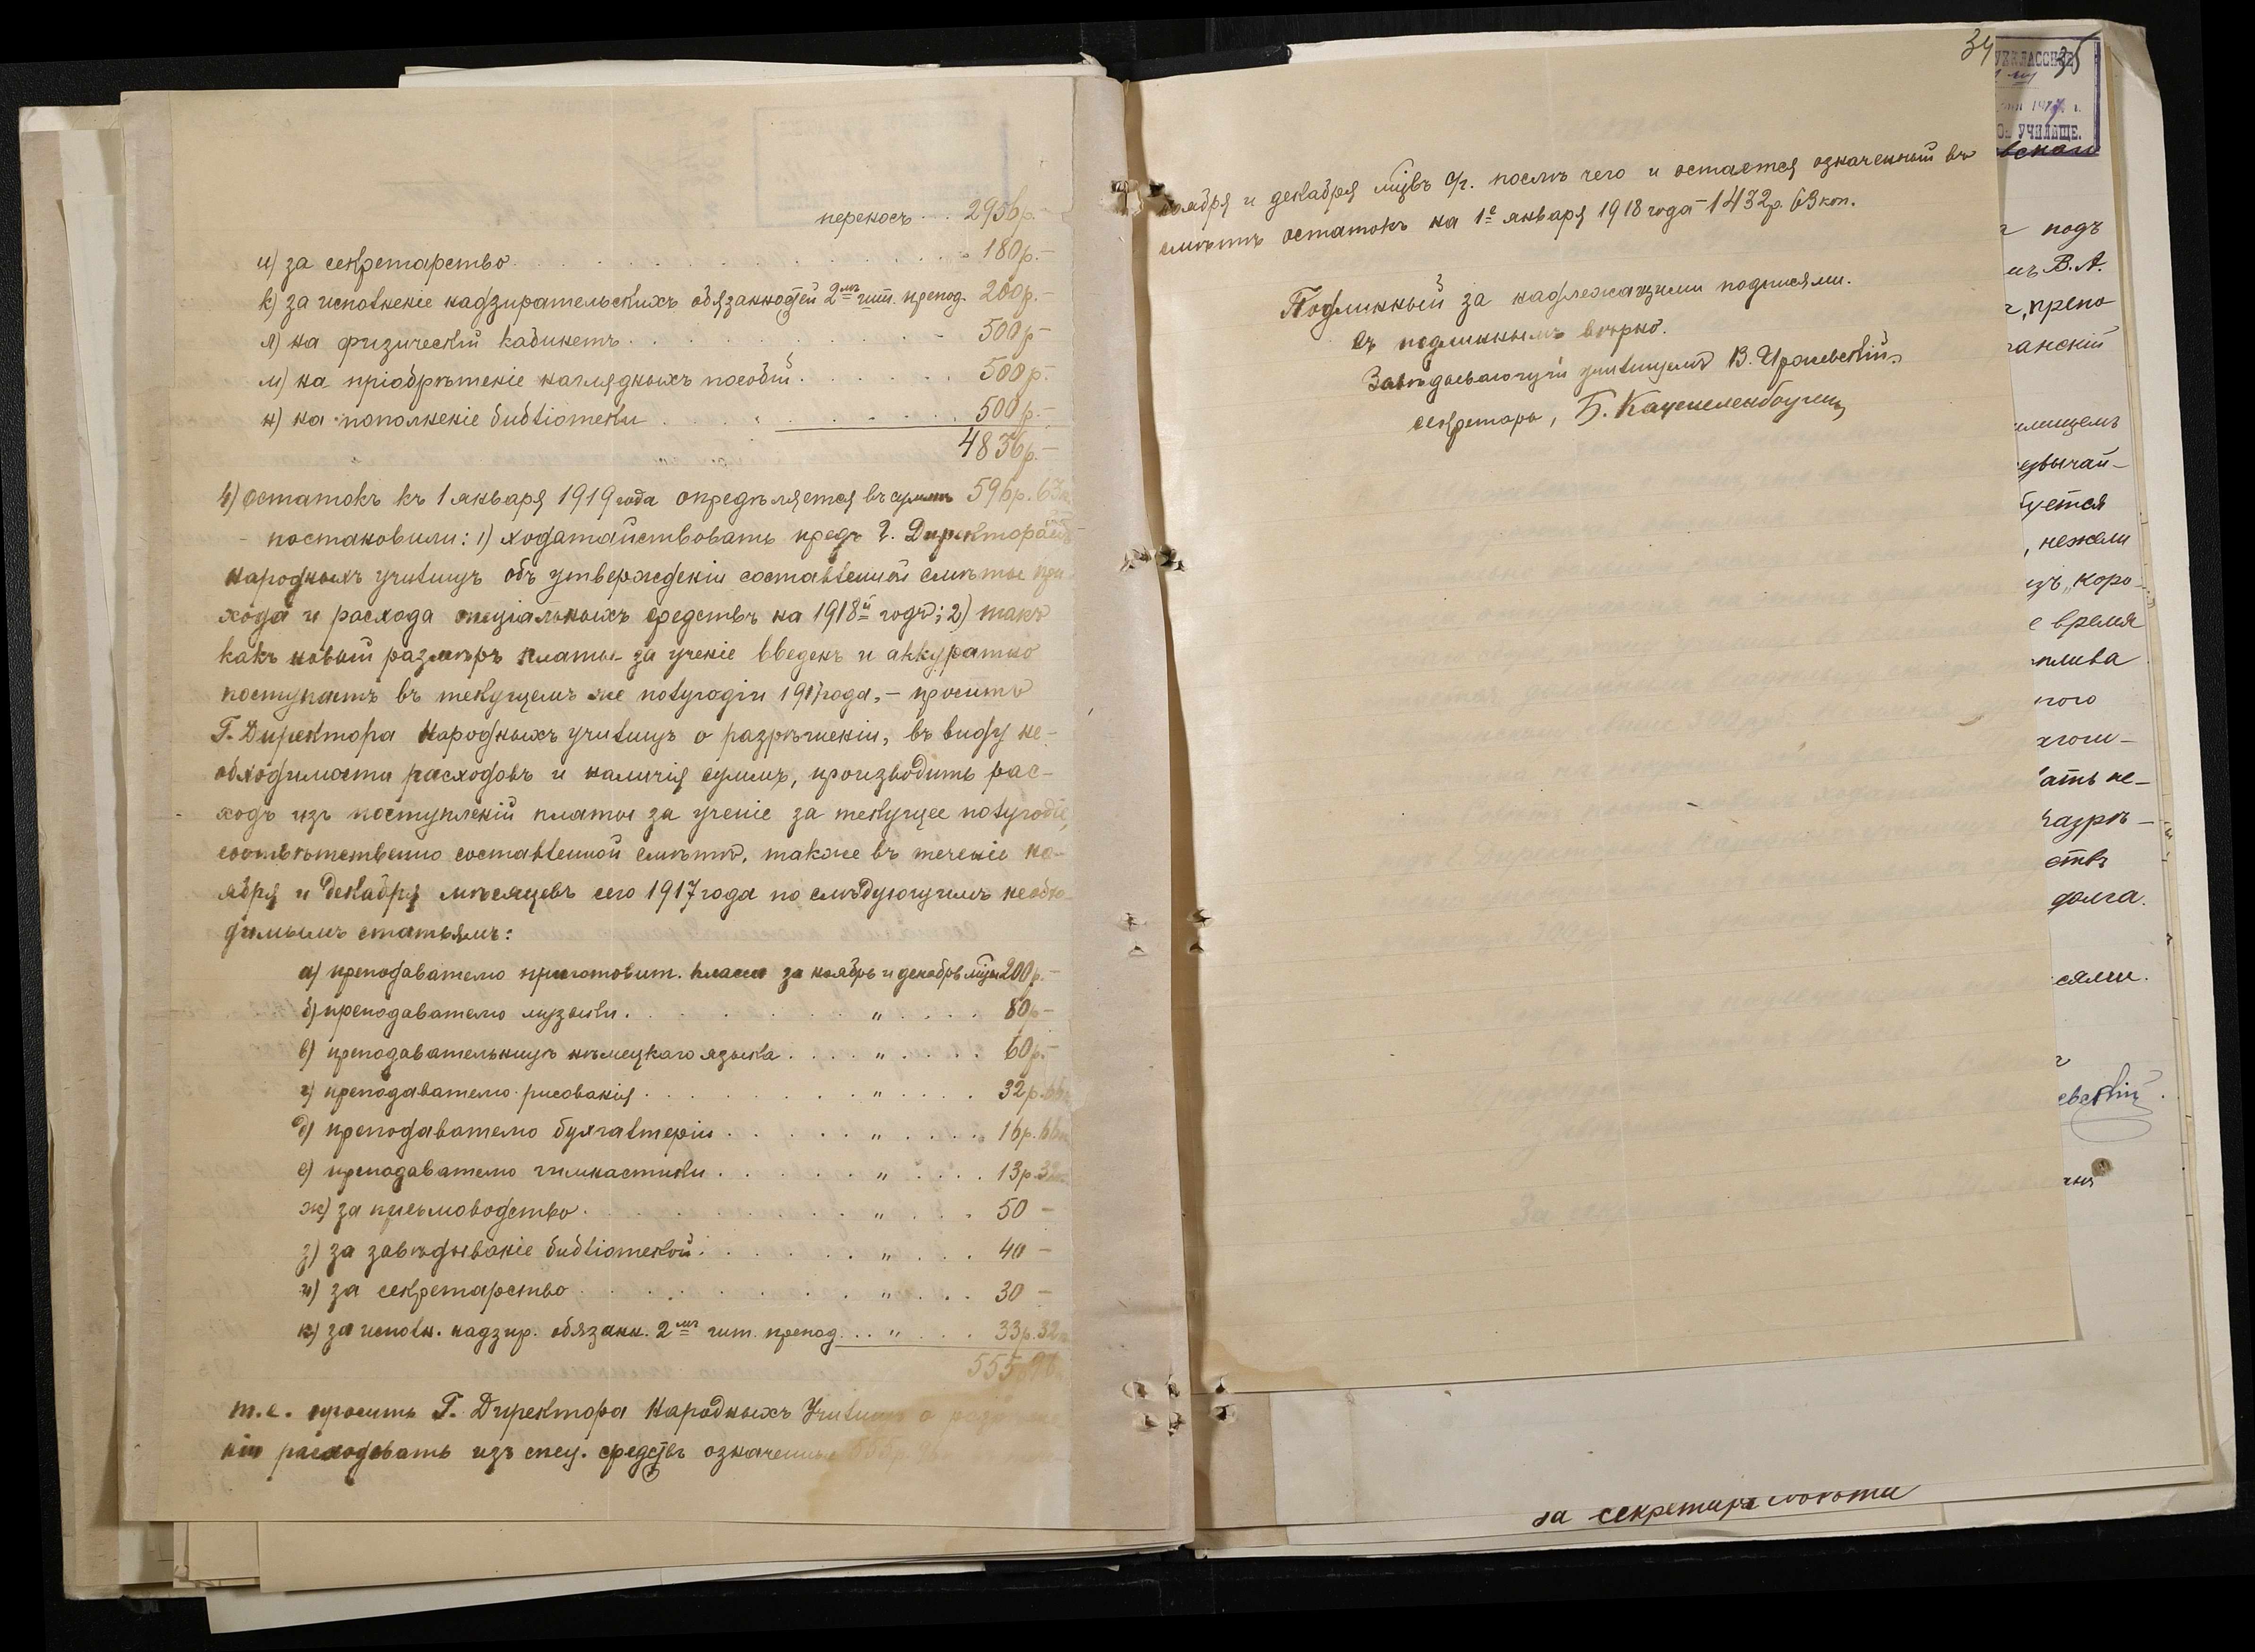 переносъ . . 2956р.-
и) за секретарство . . . 180р.-
к) за исполненіе надзирательскихъ обязанностей 2мъ шт. препод. 200р.-
л) на физическій кабинетъ . . . 500р-
м) на пріобрѣтеніе наглядныхъ пособій . . . 500р.-
н) на пополненіе библіотеки . . . 500р.-
4836р.-
4) Остатокъ къ 1 января 1919 года опредѣляется въ суммѣ 596р. 63к.
постановили: 1) ходатайствовать предъ Г. Директоромъ
народныхъ училищъ объ утвержденіи составленной смѣты при-
хода и расхода спеціальныхъ средствъ на 1918й годъ; 2) такъ
какъ новый размѣръ платы за ученіе введенъ и аккуратно
поступаетъ въ текущемъ же полугодіи 1917 года, - просить
Г. Директора Народныхъ училищъ о разрѣшеніи, въ виду не-
обходимости расходовъ и наличія суммъ, производить рас-
ходъ изъ поступленій платы за ученіе за текущее полугодіе,
соотвѣтственно составленной смѣтѣ, также въ теченіе но-
ября и декабря мѣсяцевъ сего 1917 года по слѣдующимъ необхо-
димымъ статьямъ:
а) преподавателю приготовит. класса за ноябрь и декабрь мцы 200р.-
б) преподавателю музыки . . . " . . . 80р-
в) преподавательницѣ нѣмецкаго языка . . . " . . . 60р.-
г) преподавателю рисованія . . . " . . . 32р. 66к
д) преподавателю бухгалтеріи . . . " . . . 16р. 66к
е) преподавателю гимнастики . . . " . . . 13р. 32к
ж) за письмоводство . . . " . . . 50 -
з) за завѣдываніе библіотекой . . . " . . . 40 -
и) за секретарство . . . " . . . 30 -
к) за исполн. надзир. обязанн. 2мъ шт. препод. . . " . . . 33р. 32к
555р.
т.е. просить Г. Директора Народныхъ Училищъ о разрѣше-
ніи расходовать изъ спец. средствъ означенные 555р.
34
35
ноября и декабря мцвъ с/г. послѣ чего и остается означенный въ
смѣтѣ остатокъ на 1е января 1918 года - 1432р. 63 коп.
Подлинный за надлежащими подписями.
Съ подлиннымъ вѣрно.
Завѣдывающій училищемъ В.
секретарь, Б.
УЧИЛИЩЕ.
подъ
В. А.
препо
анскій
илищемъ
звычай-
буется
, нежели
изъ „коро-
е время
плива
ного
ать не-
разрѣ-
ствъ
долга.
сями.
евскій.
за секретаря